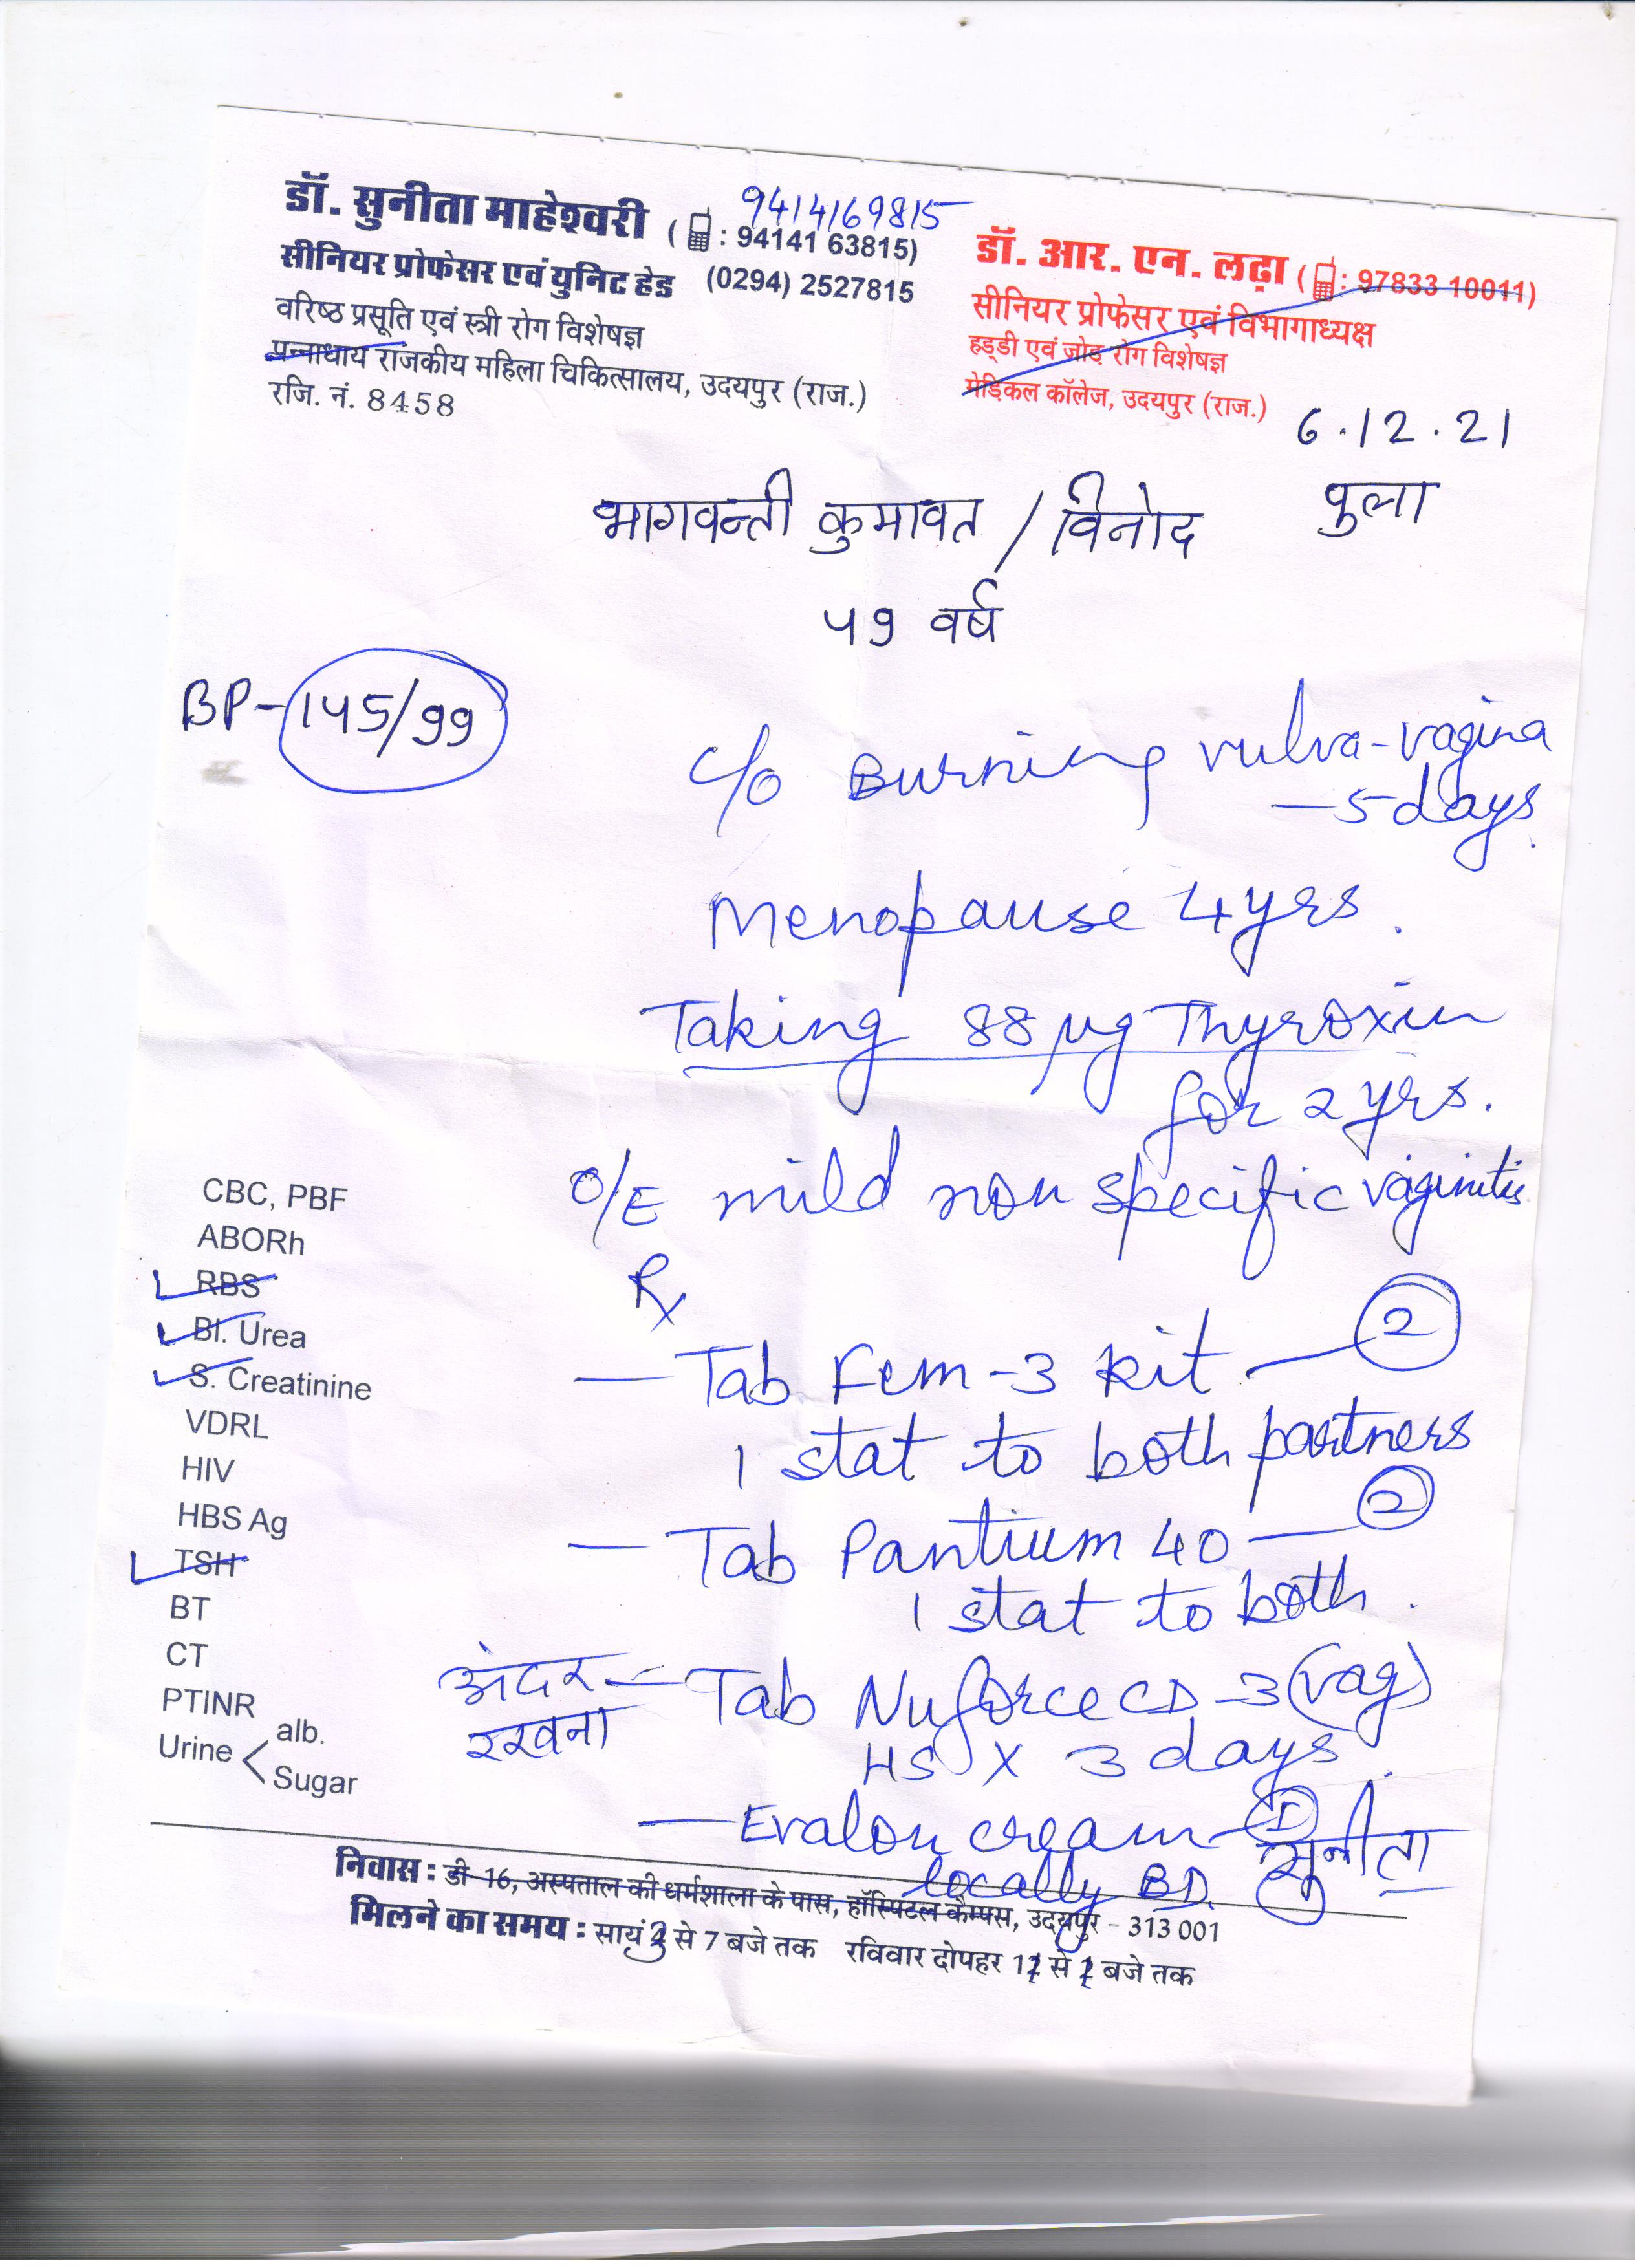 डॉ. सुनीता माहेश्वरी ( : 94141 63815)
9414169815
सीनियर प्रोफेसर एवं युनिट हेड (0294) 2527815
वरिष्ठ प्रसूति एवं स्त्री रोग विशेषज्ञ
पन्नाधाय राजकीय महिला चिकित्सालय, उदयपुर (राज.)
रजि. नं. 8458
डॉ. आर. एन. लढ़ा ( : 97833 10011)
सीनियर प्रोफेसर एवं विभागाध्यक्ष
हड्डी एवं जोड़ रोग विशेषज्ञ
मेड़िकल कॉलेज, उदयपुर (राज.)
6.12.21
भागवन्ती कुमावत / विनोद पुला
५९ वर्ष
BP-145/99
c/o Burning vulva-vagina
—5 days.
Menopause 4 yrs.
Taking 88 µg Thyroxin
for 2 yrs.
O/E mild non specific vaginitis
Rx
— Tab Fem-3 Kit — 2
1 stat to both partners
— Tab Pantium 40 — 2
1 stat to both.
अंदर रखना
— Tab Nuforce CD-3 (vag)
HS X 3 days.
— Evalon cream — 1
locally BD.
सुनीता
CBC, PBF
ABORh
RBS
Bl. Urea
S. Creatinine
VDRL
HIV
HBS Ag
TSH
BT
CT
PTINR
Urine < alb.
Sugar
निवास : डी-16, अस्पताल की धर्मशाला के पास, हॉस्पिटल कैम्पस, उदयपुर – 313 001
मिलने का समय : सायं 3 से 7 बजे तक रविवार दोपहर से बजे तक